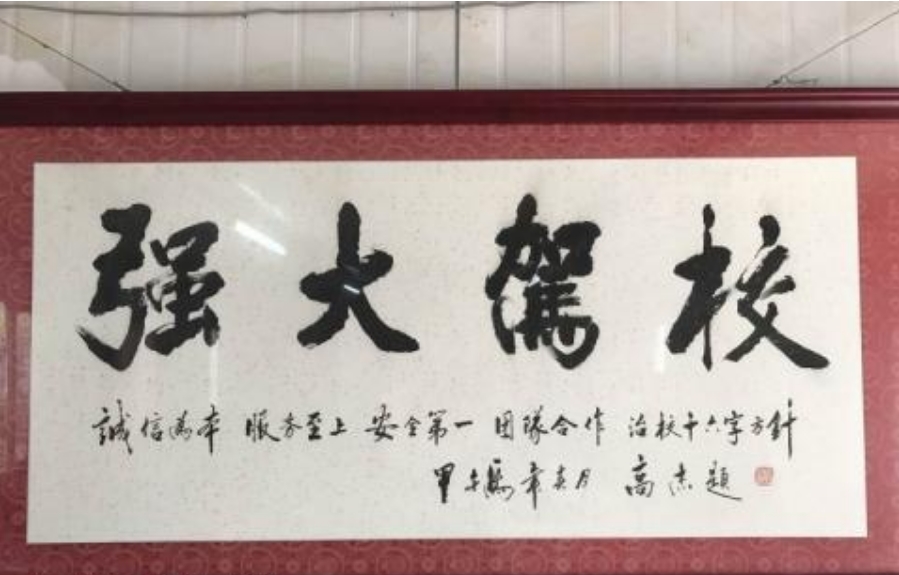 强大駕校
誠信為本 服务至上 安全第一 团隊合作 治校十六字方針
甲午馬年春月 高杰題